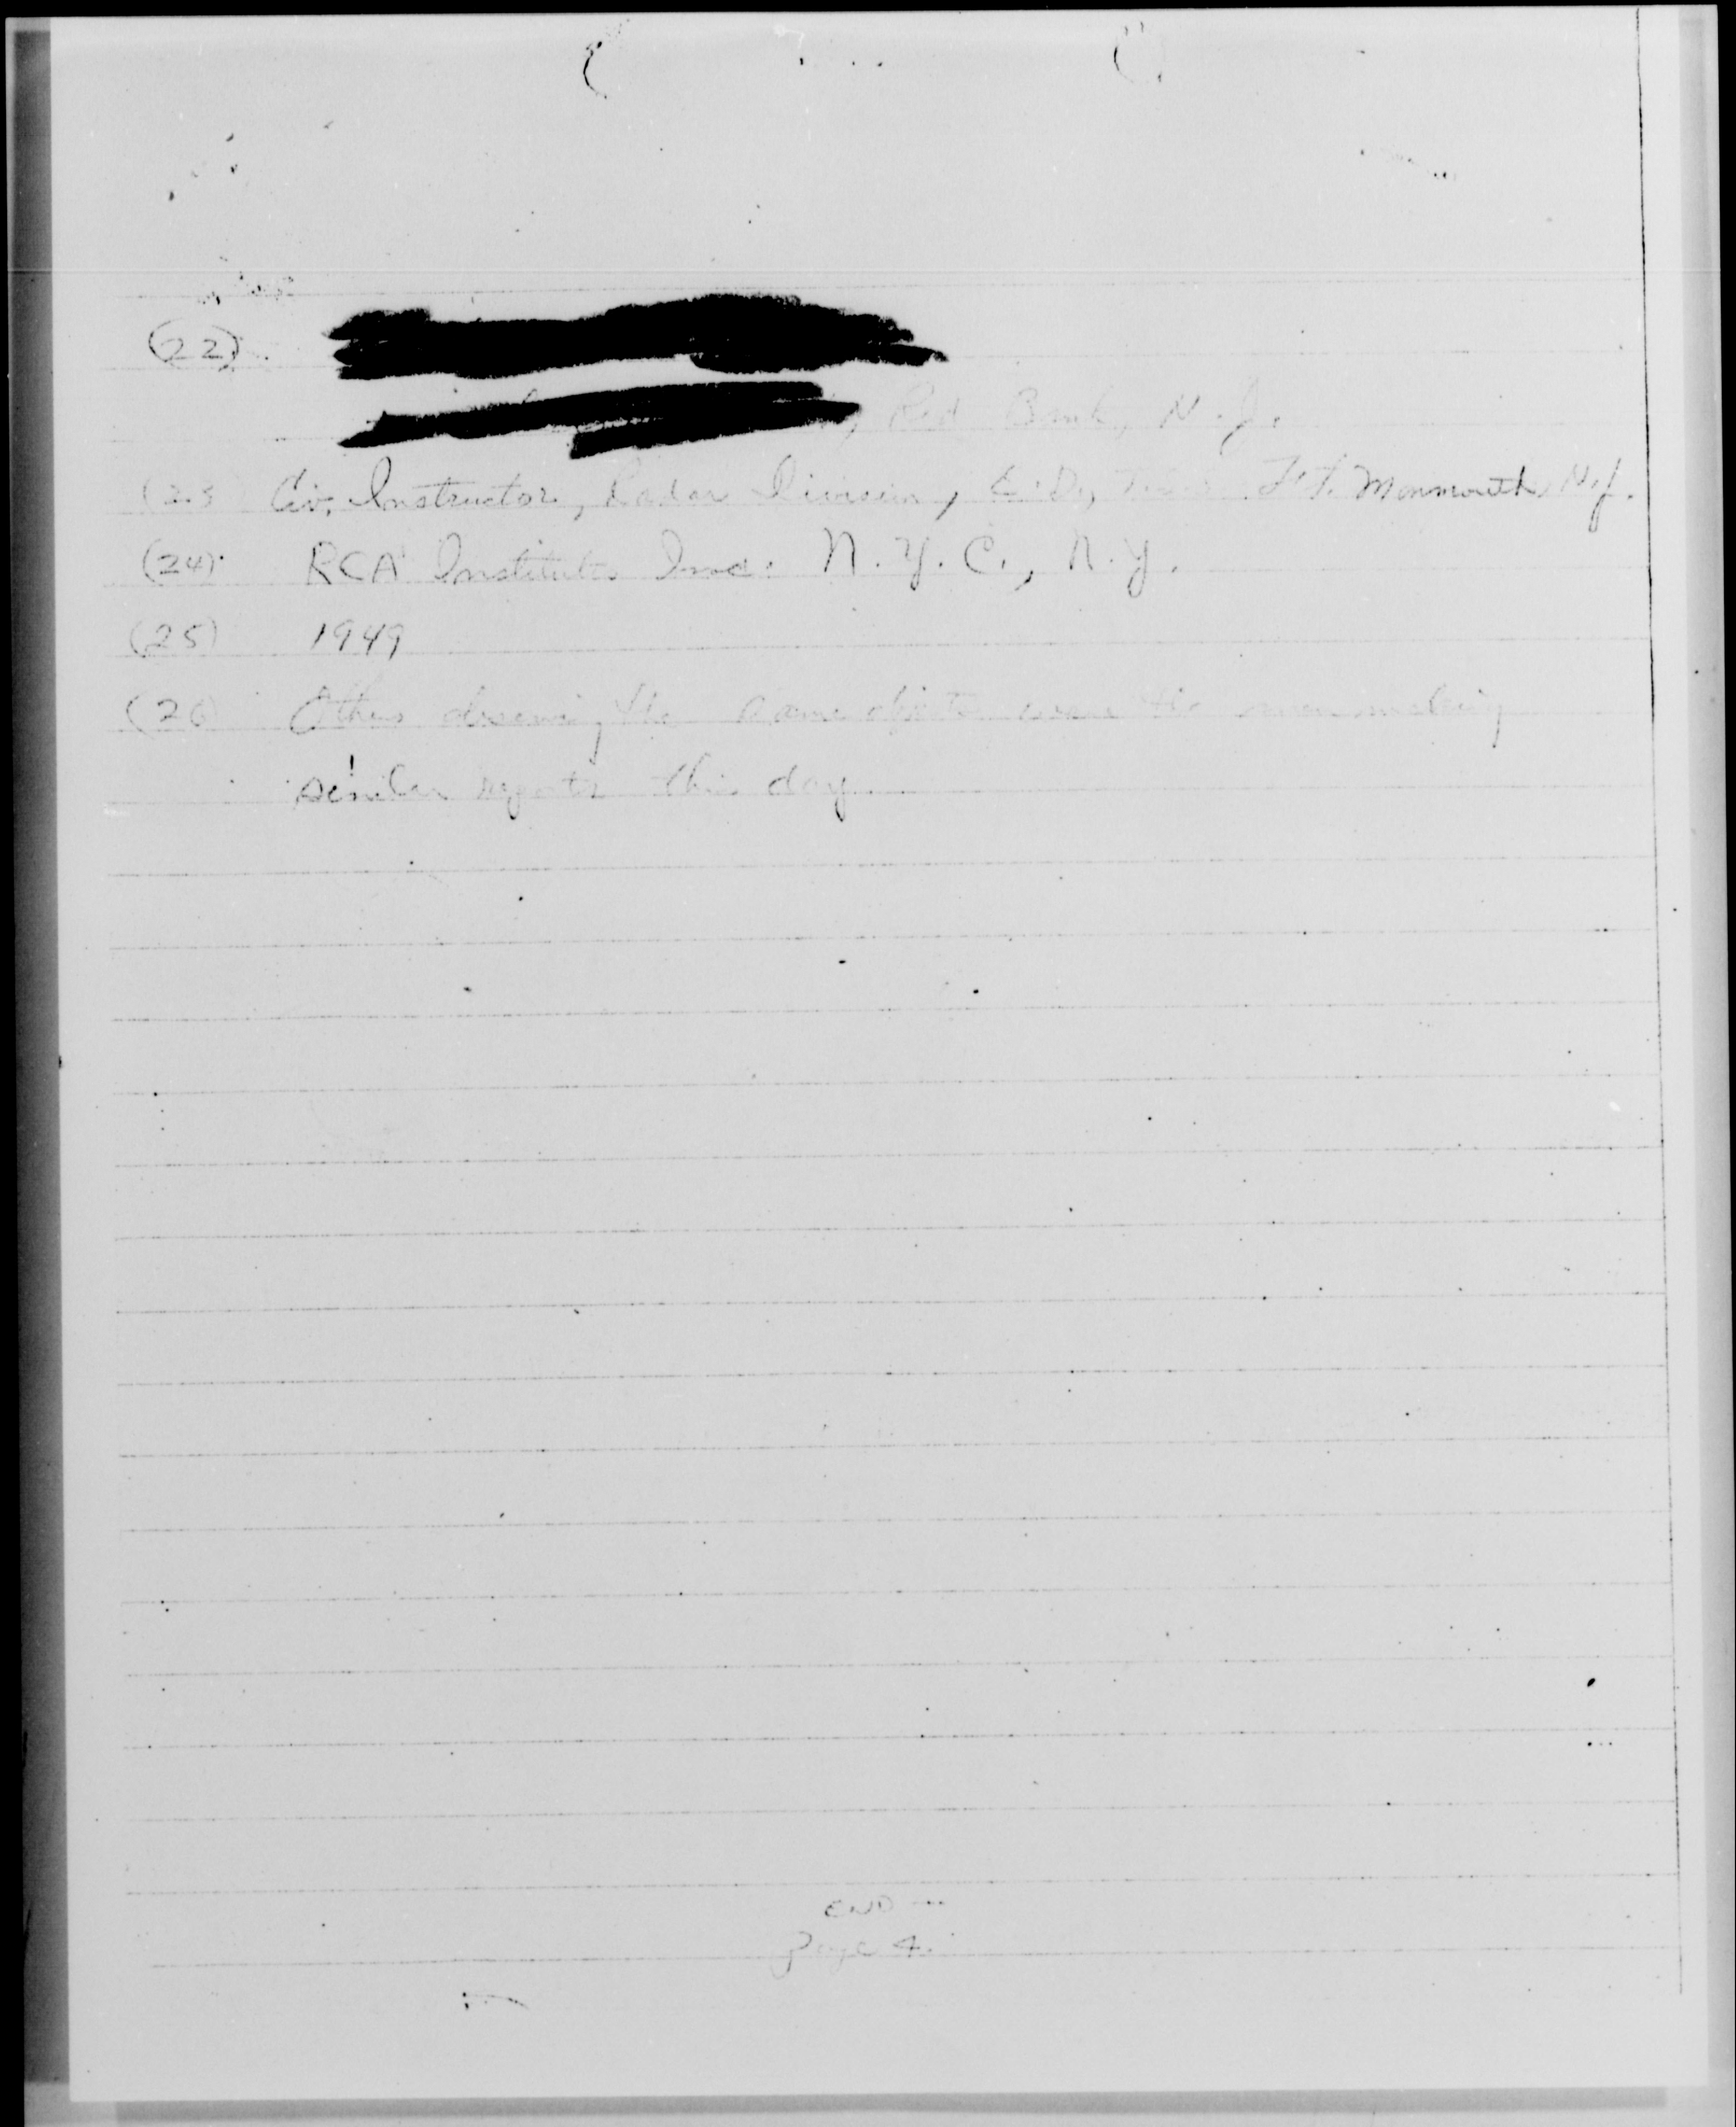 (22)
, Red Bank, N.J.
(23 Civ. Instructor, Radar Division, Ft. Monmouth, N.J.
(24) RCA Institutes Inc. N.Y.C., N.Y.
(25) 1949
(26) Others observing the same objects were the men making
similar reports this day
END
page 4.